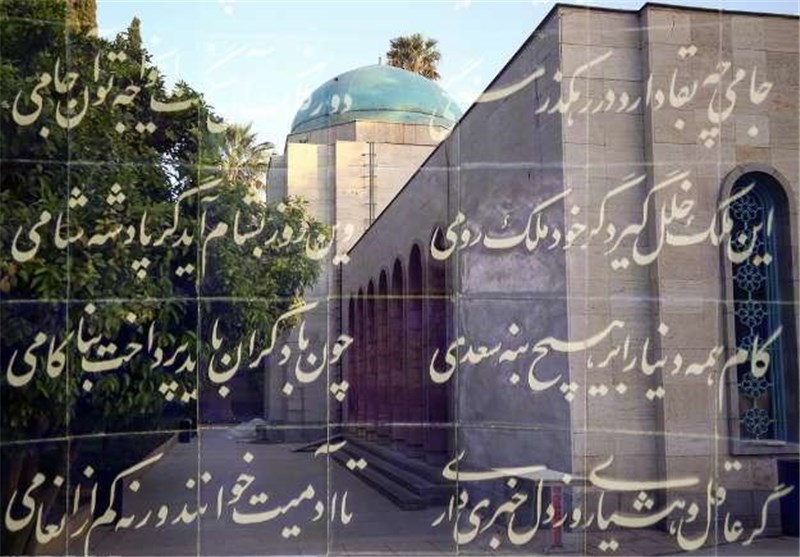 جامی چه بقا دارد در رهگذر سنگی دور خواجه تو آن جامی
این ملک خلل گیرد گر خود ملک رومی وین روز بشام آید گر پادشه شامی
کام همه دنیا را بر هیچ منه سعدی چون با دگران باید پرداخت بناکامی
گر عاقل و هشیاری وز دل خبری داری تا آدمیت خوانند ورنه کم از انعامی